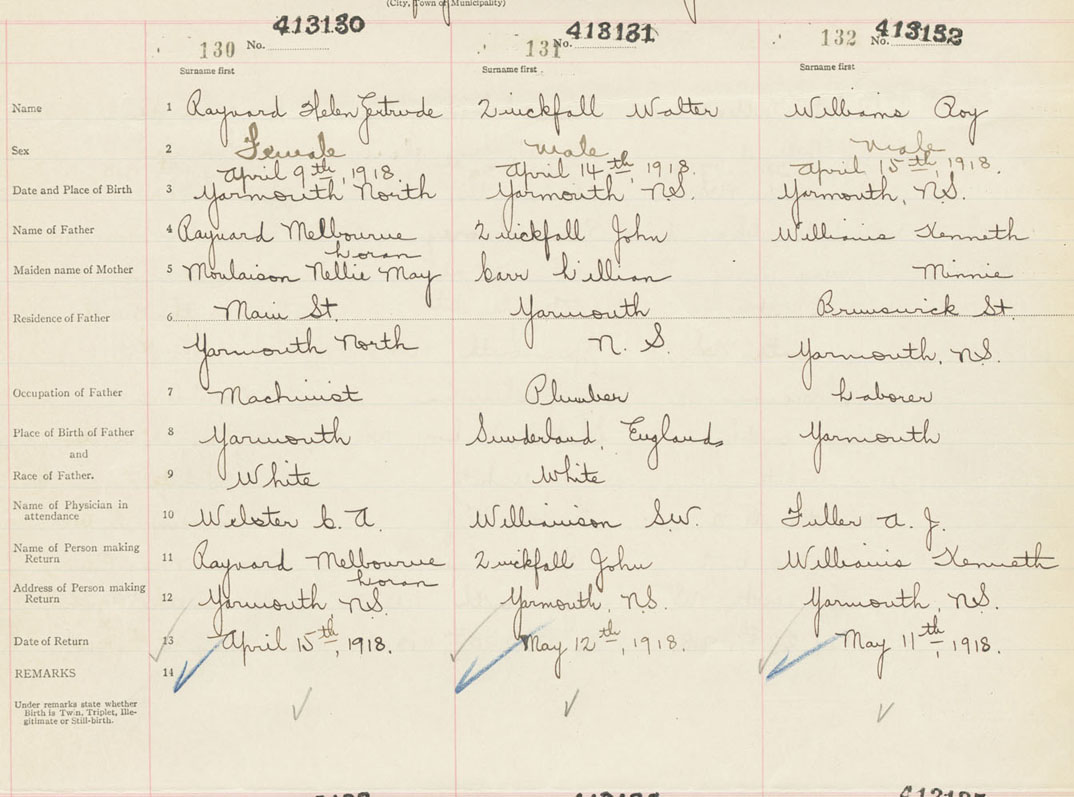 (City, Town or Municipality)
413130 413131 413132
130 No. 131 No. 132 No.
Surname first Surname first Surname first
Name 1 Raynard Helen Gertrude Quickfall Walter Williams Roy
Sex 2 Female Male Male
April 9th, 1918. April 14th, 1918. April 15th, 1918.
Date and Place of Birth 3 Yarmouth North Yarmouth, N.S. Yarmouth, N.S.
Name of Father 4 Raynard Melbourne Quickfall John Williams Kenneth
Loran
Maiden name of Mother 5 Moulaison Nellie May Carr Lillian Minnie
Main St. Yarmouth Brunswick St.
Residence of Father 6
Yarmouth North N. S. Yarmouth, N.S.
Occupation of Father 7 Machinist Plumber Laborer
Place of Birth of Father 8 Yarmouth Sunderland, England Yarmouth
and
Race of Father. 9 White White
Name of Physician in
attendance 10 Webster C. A. Williamson S.W. Fuller A. J.
Name of Person making
Return 11 Raynard Melbourne Quickfall John Williams Kenneth
Loran
Address of Person making
Return 12 Yarmouth N.S. Yarmouth, N.S. Yarmouth, N.S.
Date of Return 13 April 15th, 1918. May 12th, 1918. May 11th, 1918.
REMARKS 14
Under remarks state whether
Birth is Twin, Triplet, Ille-
gitimate or Still-birth.